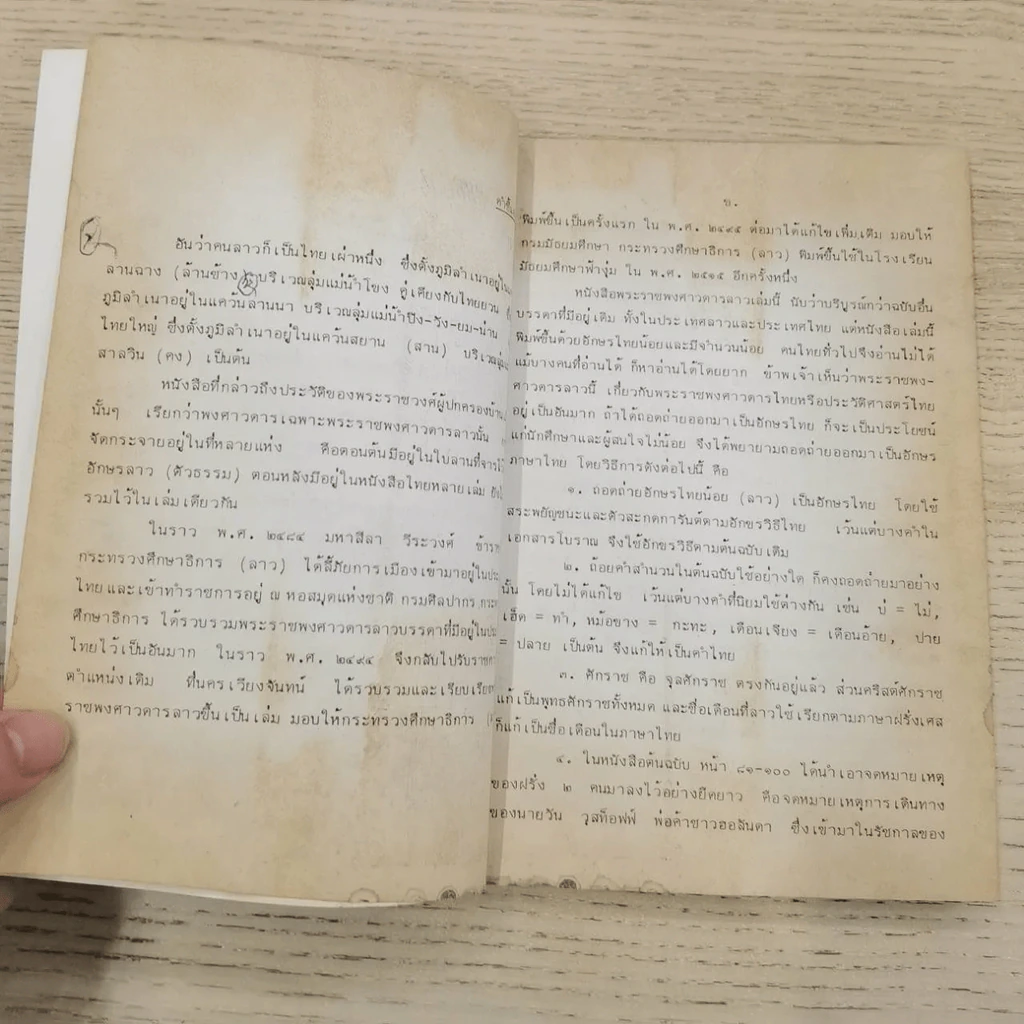 คำ
อันว่าคนลาวก็เป็นไทยเผ่าหนึ่ง ซึ่งตั้งภูมิลำเนาอยู่ใน
ลานฉาง (ล้านช้าง) บริเวณลุ่มแม่น้ำโขง คู่เคียงกับไทยยวน
ภูมิลำเนาอยู่ในแคว้นลานนา บริเวณลุ่มแม่น้ำปิง-วัง-ยม-น่าน
ไทยใหญ่ ซึ่งตั้งภูมิลำเนาอยู่ในแคว้นสยาน (สาน) บริเวณลุ่ม
สาลวิน (คง) เป็นต้น
หนังสือที่กล่าวถึงประวัติของพระราชวงศ์ผู้ปกครองบ้าน
นั้นๆ เรียกว่าพงศาวดารเฉพาะพระราชพงศาวดารลาวนั้น
จัดกระจายอยู่ในที่หลายแห่ง คือตอนต้นมีอยู่ในใบลานที่จาร
อักษรลาว (ตัวธรรม) ตอนหลังมีอยู่ในหนังสือไทยหลายเล่ม ยัง
รวมไว้ในเล่มเดียวกัน
ในราว พ.ศ. ๒๔๘๔ มหาสีลา วีระวงศ์ ข้าราช
กระทรวงศึกษาธิการ (ลาว) ได้ลี้ภัยการเมืองเข้ามาอยู่ในประ
ไทยและเข้าทำราชการอยู่ ณ หอสมุดแห่งชาติ กรมศิลปากร กระ
ศึกษาธิการ ได้รวบรวมพระราชพงศาวดารลาวบรรดาที่มีอยู่ในประ
ไทยไว้เป็นอันมาก ในราว พ.ศ. ๒๔๙๔ จึงกลับไปรับราชกา
ตำแหน่งเดิม ที่นครเวียงจันทน์ ได้รวบรวมและเรียบเรียง
ราชพงศาวดารลาวขึ้นเป็นเล่ม มอบให้กระทรวงศึกษาธิการ
ข.
พิมพ์ขึ้นเป็นครั้งแรก ใน พ.ศ. ๒๔๙๕ ต่อมาได้แก้ไขเพิ่มเติม มอบให้
กรมมัธยมศึกษา กระทรวงศึกษาธิการ (ลาว) พิมพ์ขึ้นใช้ในโรงเรียน
มัธยมศึกษาฟ้างุ่ม ใน พ.ศ. ๒๕๑๕ อีกครั้งหนึ่ง
หนังสือพระราชพงศาวดารลาวเล่มนี้ นับว่าบริบูรณ์กว่าฉบับอื่น
บรรดาที่มีอยู่เดิม ทั้งในประเทศลาวและประเทศไทย แต่หนังสือเล่มนี้
พิมพ์ขึ้นด้วยอักษรไทยน้อยและมีจำนวนน้อย คนไทยทั่วไปจึงอ่านไม่ได้
แม้บางคนที่อ่านได้ ก็หาอ่านได้โดยยาก ข้าพเจ้าเห็นว่าพระราชพง-
ศาวดารลาวนี้ เกี่ยวกับพระราชพงศาวดารไทยหรือประวัติศาสตร์ไทย
อยู่เป็นอันมาก ถ้าได้ถอดถ่ายออกมาเป็นอักษรไทย ก็จะเป็นประโยชน์
แก่นักศึกษาและผู้สนใจไม่น้อย จึงได้พยายามถอดถ่ายออกมาเป็นอักษร
ภาษาไทย โดยวิธีการดังต่อไปนี้ คือ
๑. ถอดถ่ายอักษรไทยน้อย (ลาว) เป็นอักษรไทย โดยใช้
สระพยัญชนะและตัวสะกดการันต์ตามอักขรวิธีไทย เว้นแต่บางคำใน
เอกสารโบราณ จึงใช้อักขรวิธีตามต้นฉบับเดิม
๒. ถ้อยคำสำนวนในต้นฉบับใช้อย่างใด ก็คงถอดถ่ายมาอย่าง
นั้น โดยไม่ได้แก้ไข เว้นแต่บางคำที่นิยมใช้ต่างกัน เช่น บ่ = ไม่,
เฮ็ด = ทำ, หม้อขาง = กะทะ, เดือนเจียง = เดือนอ้าย, ปาย
= ปลาย เป็นต้น จึงแก้ให้เป็นคำไทย
๓. ศักราช คือ จุลศักราช ตรงกันอยู่แล้ว ส่วนคริสต์ศักราช
แก้เป็นพุทธศักราชทั้งหมด และชื่อเดือนที่ลาวใช้เรียกตามภาษาฝรั่งเศส
ก็แก้เป็นชื่อเดือนในภาษาไทย
๔. ในหนังสือต้นฉบับ หน้า ๘๑-๑๐๐ ได้นำเอาจดหมายเหตุ
ของฝรั่ง ๒ คนมาลงไว้อย่างยืดยาว คือจดหมายเหตุการเดินทาง
ของนายวัน วุสท็อฟฟ์ พ่อค้าชาวฮอลันดา ซึ่งเข้ามาในรัชกาลของ